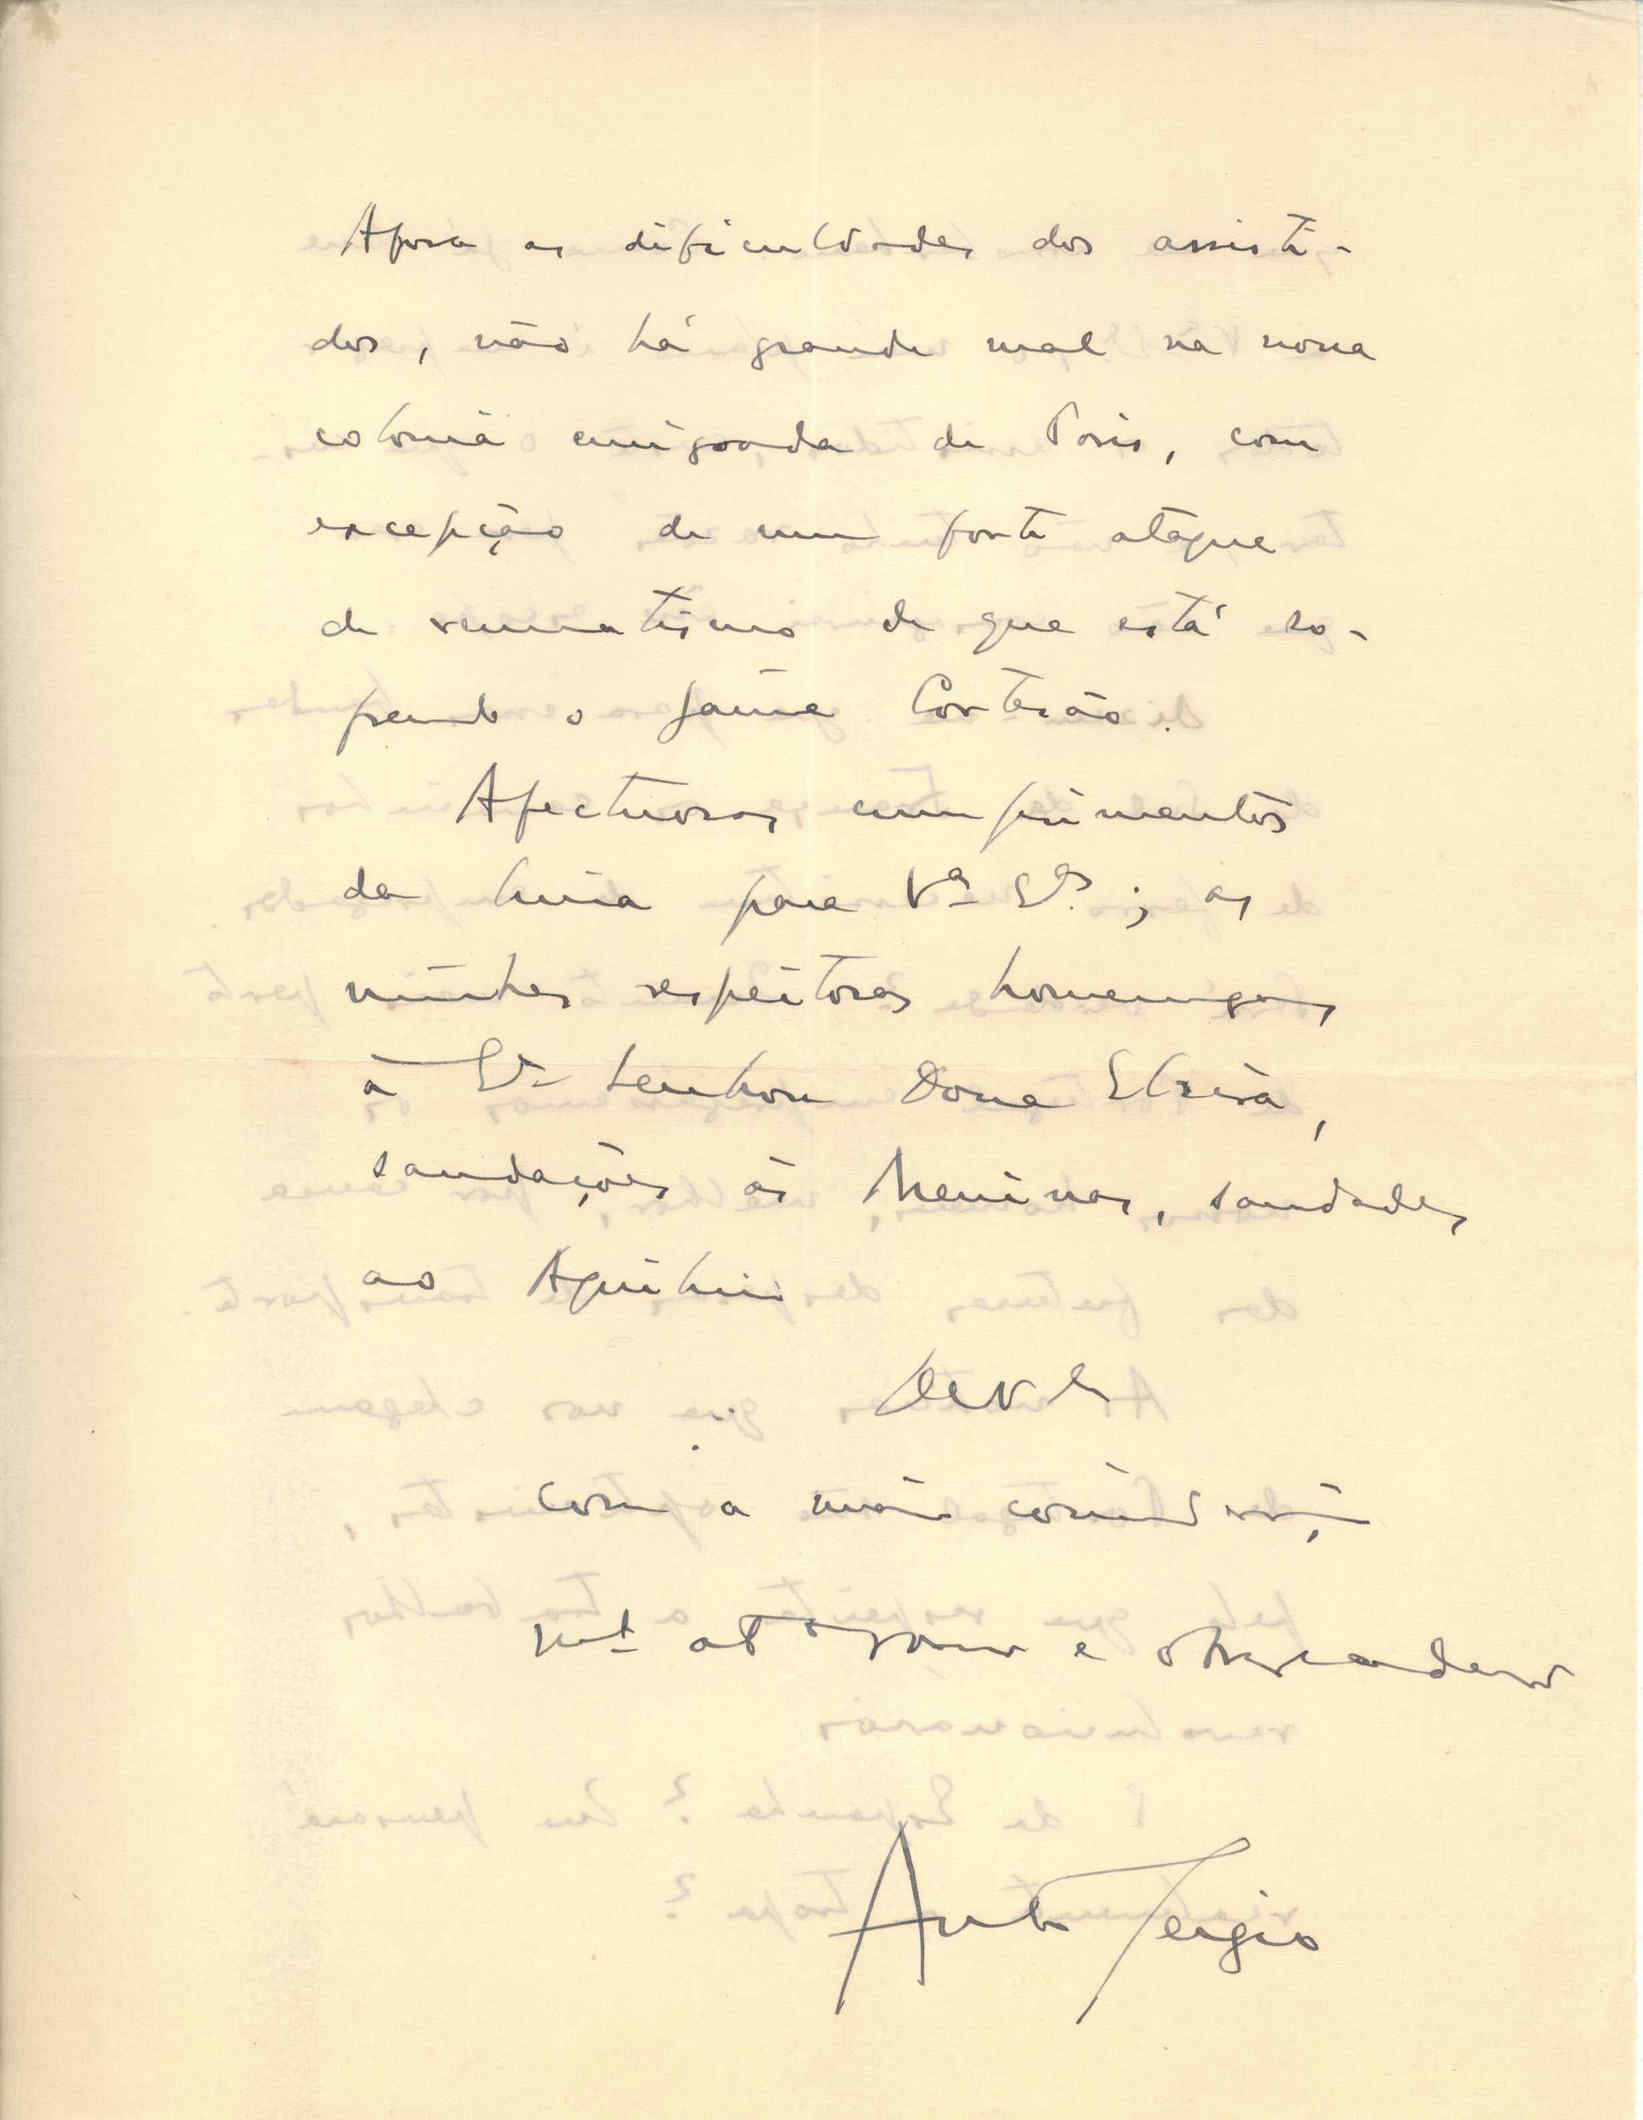 Afora as dificuldades dos assisti-
dos, não há grande mal na nossa
colonia emigrada de Paris, com
excepção de um forte ataque
de reumatismo de que está so-
frendo o Jaime Cortesão.
Afectuosos cumprimentos
da Luisa para V.as Ex.as; as
minhas respeitosas homenagens
à Ex.ma Senhora Dona Elzira,
saudações às Meninas, saudades
ao Aquilino
De V. Ex.
com a maior consideração
m.to at.o e obrigado
Ant.o Sergio